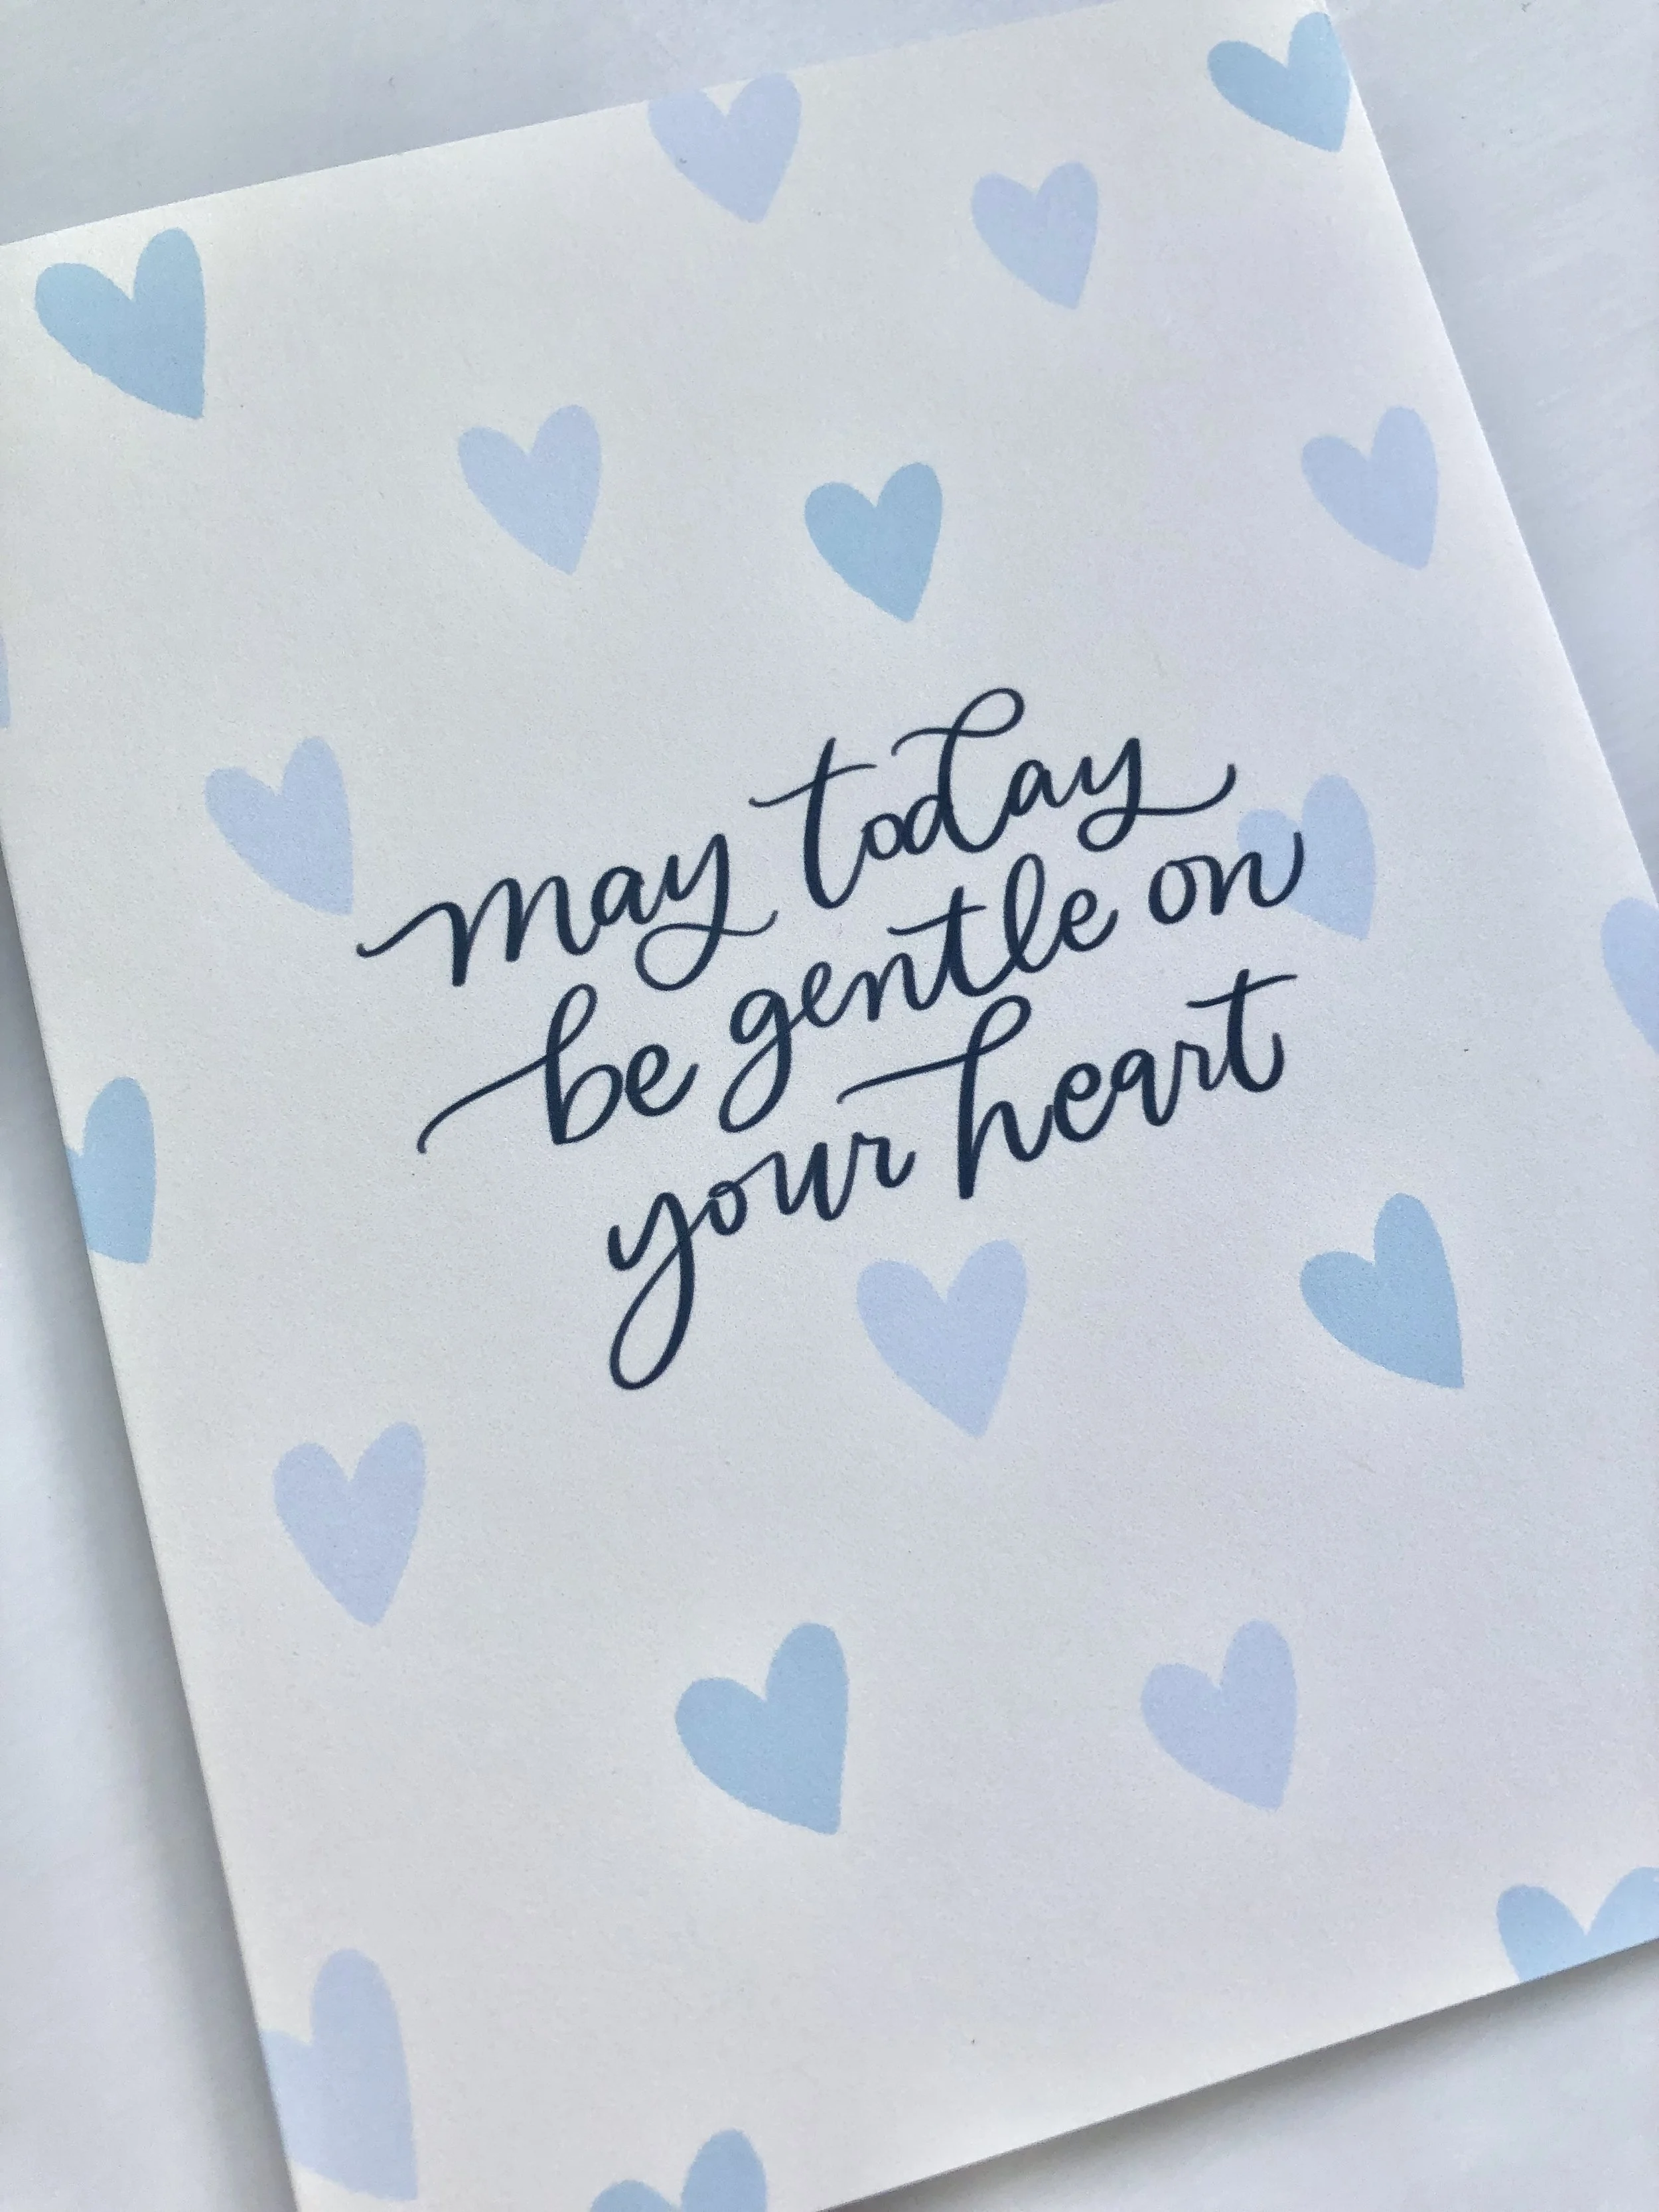 may today
be gentle on
your heart